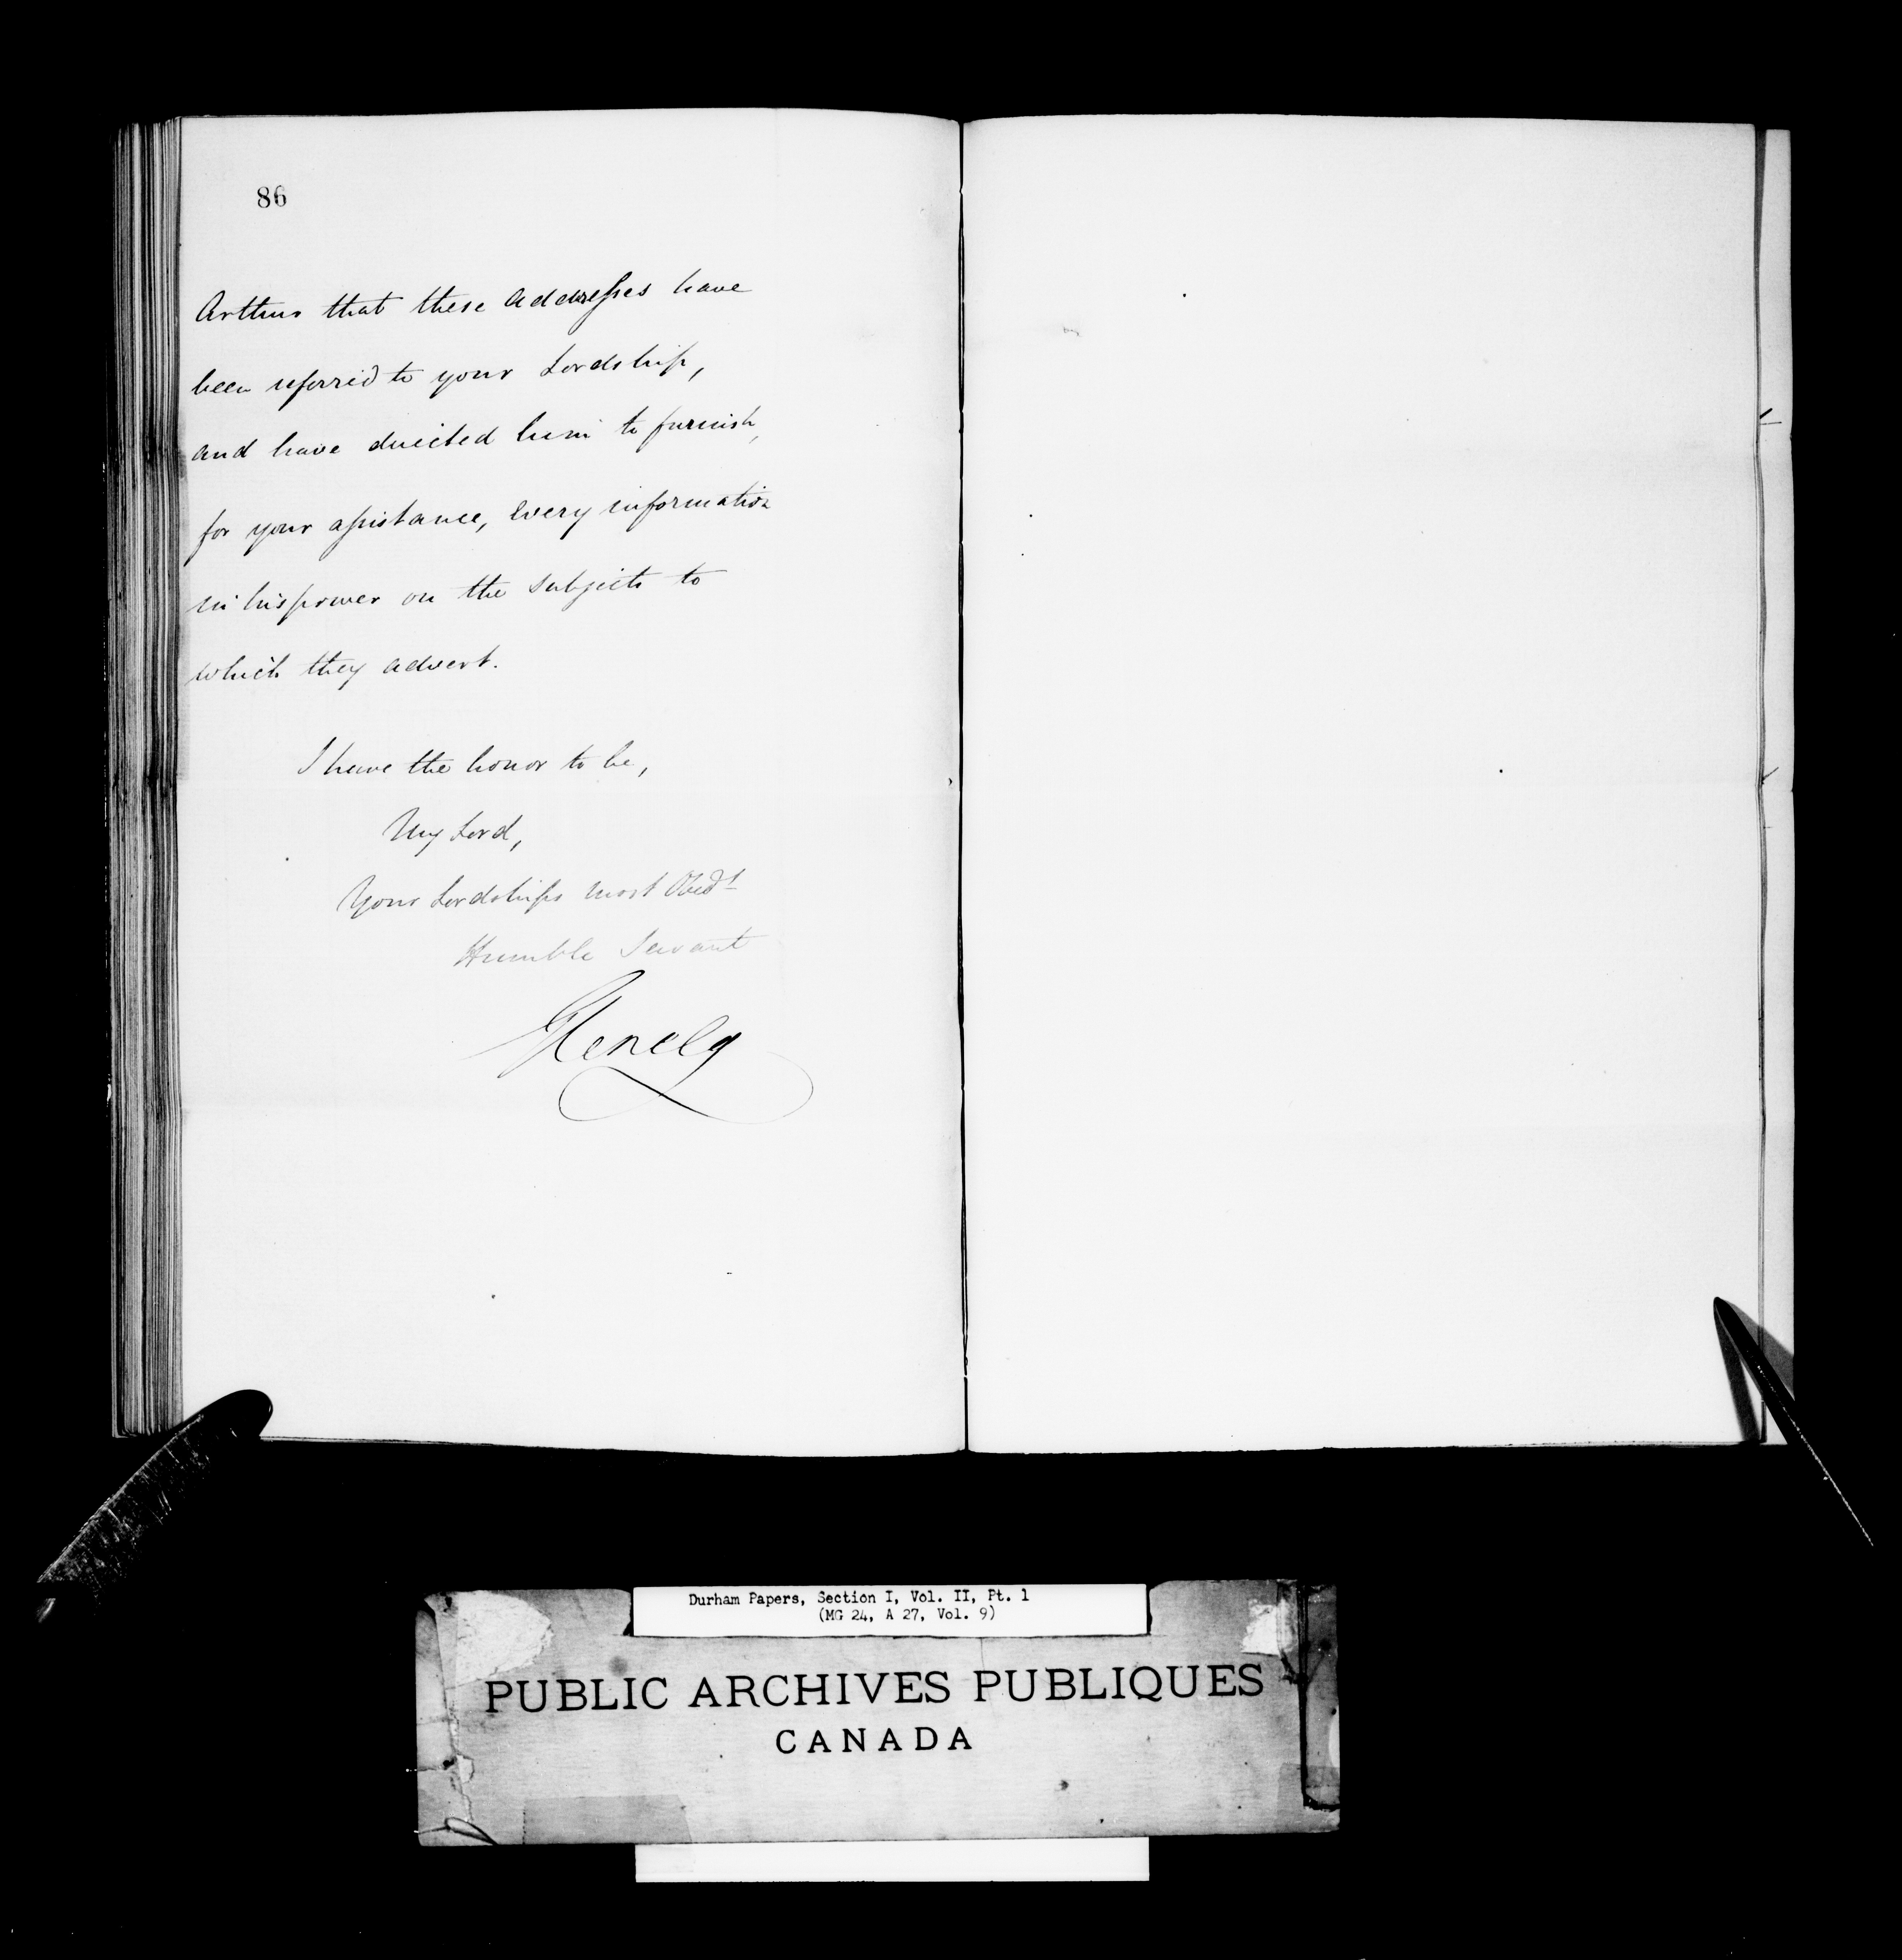 86
Arthur that these Addresses have
been referred to your Lordship,
and have directed him to furnish,
for your assistance, every information
in his power on the subjects to
which they advert.
I have the honor to be,
My Lord,
Your Lordships most Obedt
Humble Servant
Glenelg
Durham Papers, Section I, Vol. II, Pt. 1
(MG 24, A 27, Vol. 9)
PUBLIC ARCHIVES PUBLIQUES
CANADA